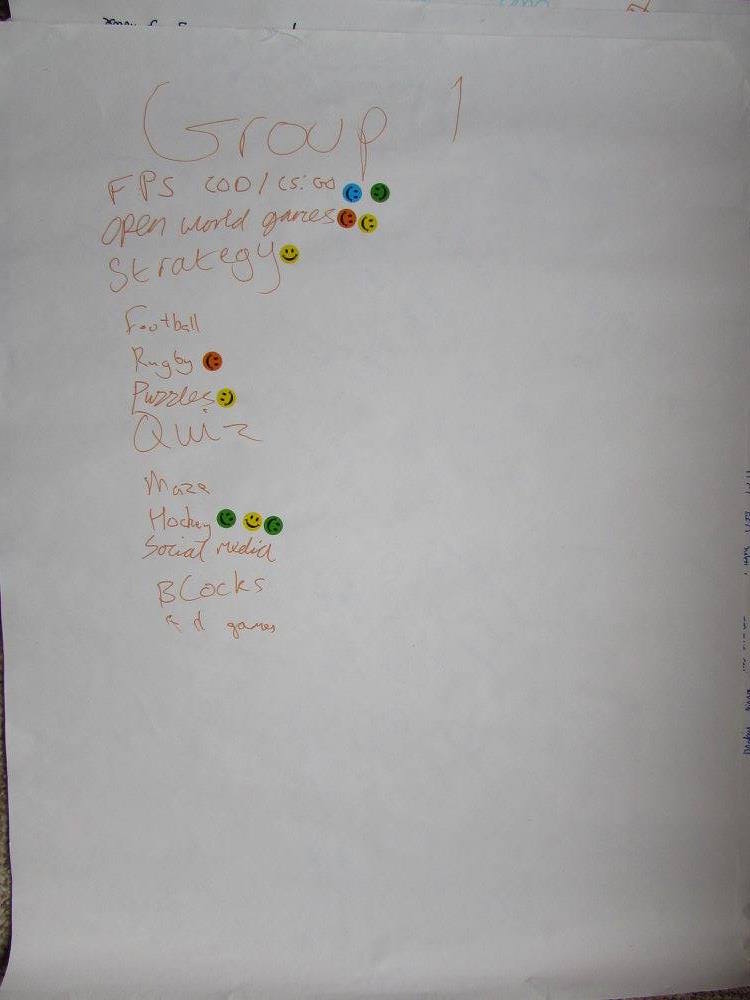 Group 1
FPS COD/CS:GO
open world games
Strategy
Football
Rugby
Puzzles
Quiz
Maze
Hockey
Social media
BLocks
games